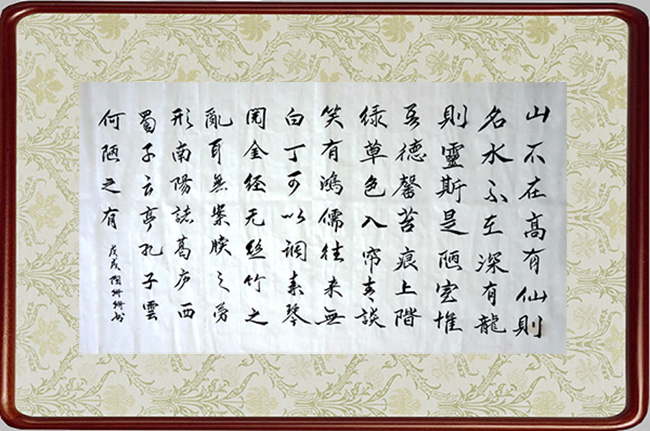 山不在高有仙則
名水不在深有龍
則靈斯是陋室惟
吾德馨苔痕上階
绿草色入帘青談
笑有鴻儒往来無
白丁可以調素琴
阅金经无丝竹之
亂耳無案牍之劳
形南陽諸葛庐西
蜀子云亭孔子雲
何陋之有
戊戌 书